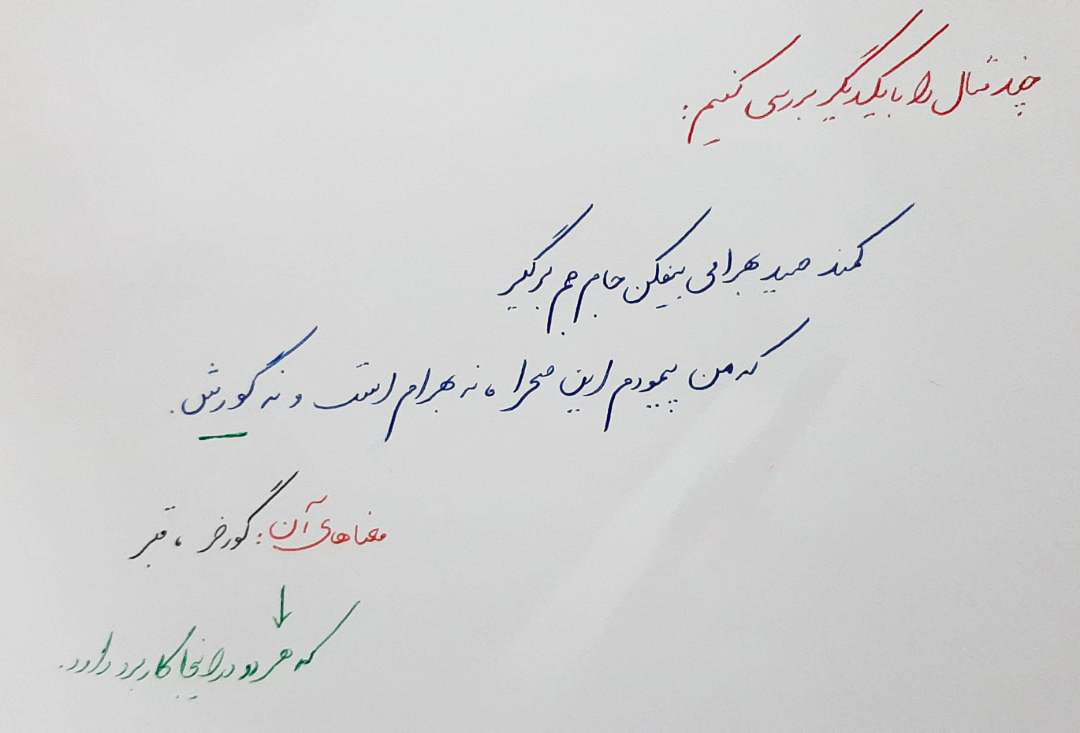 چند مثال را با یکدیگر بررسی کنیم :
کمند صید بهرامی بیفکن جام جم برگیر
که من پیمودم این صحرا ، نه بهرام است و نه گورش .
معناهای آن : گورخر ، قبر
که هر دو در اینجا کاربرد دارد .